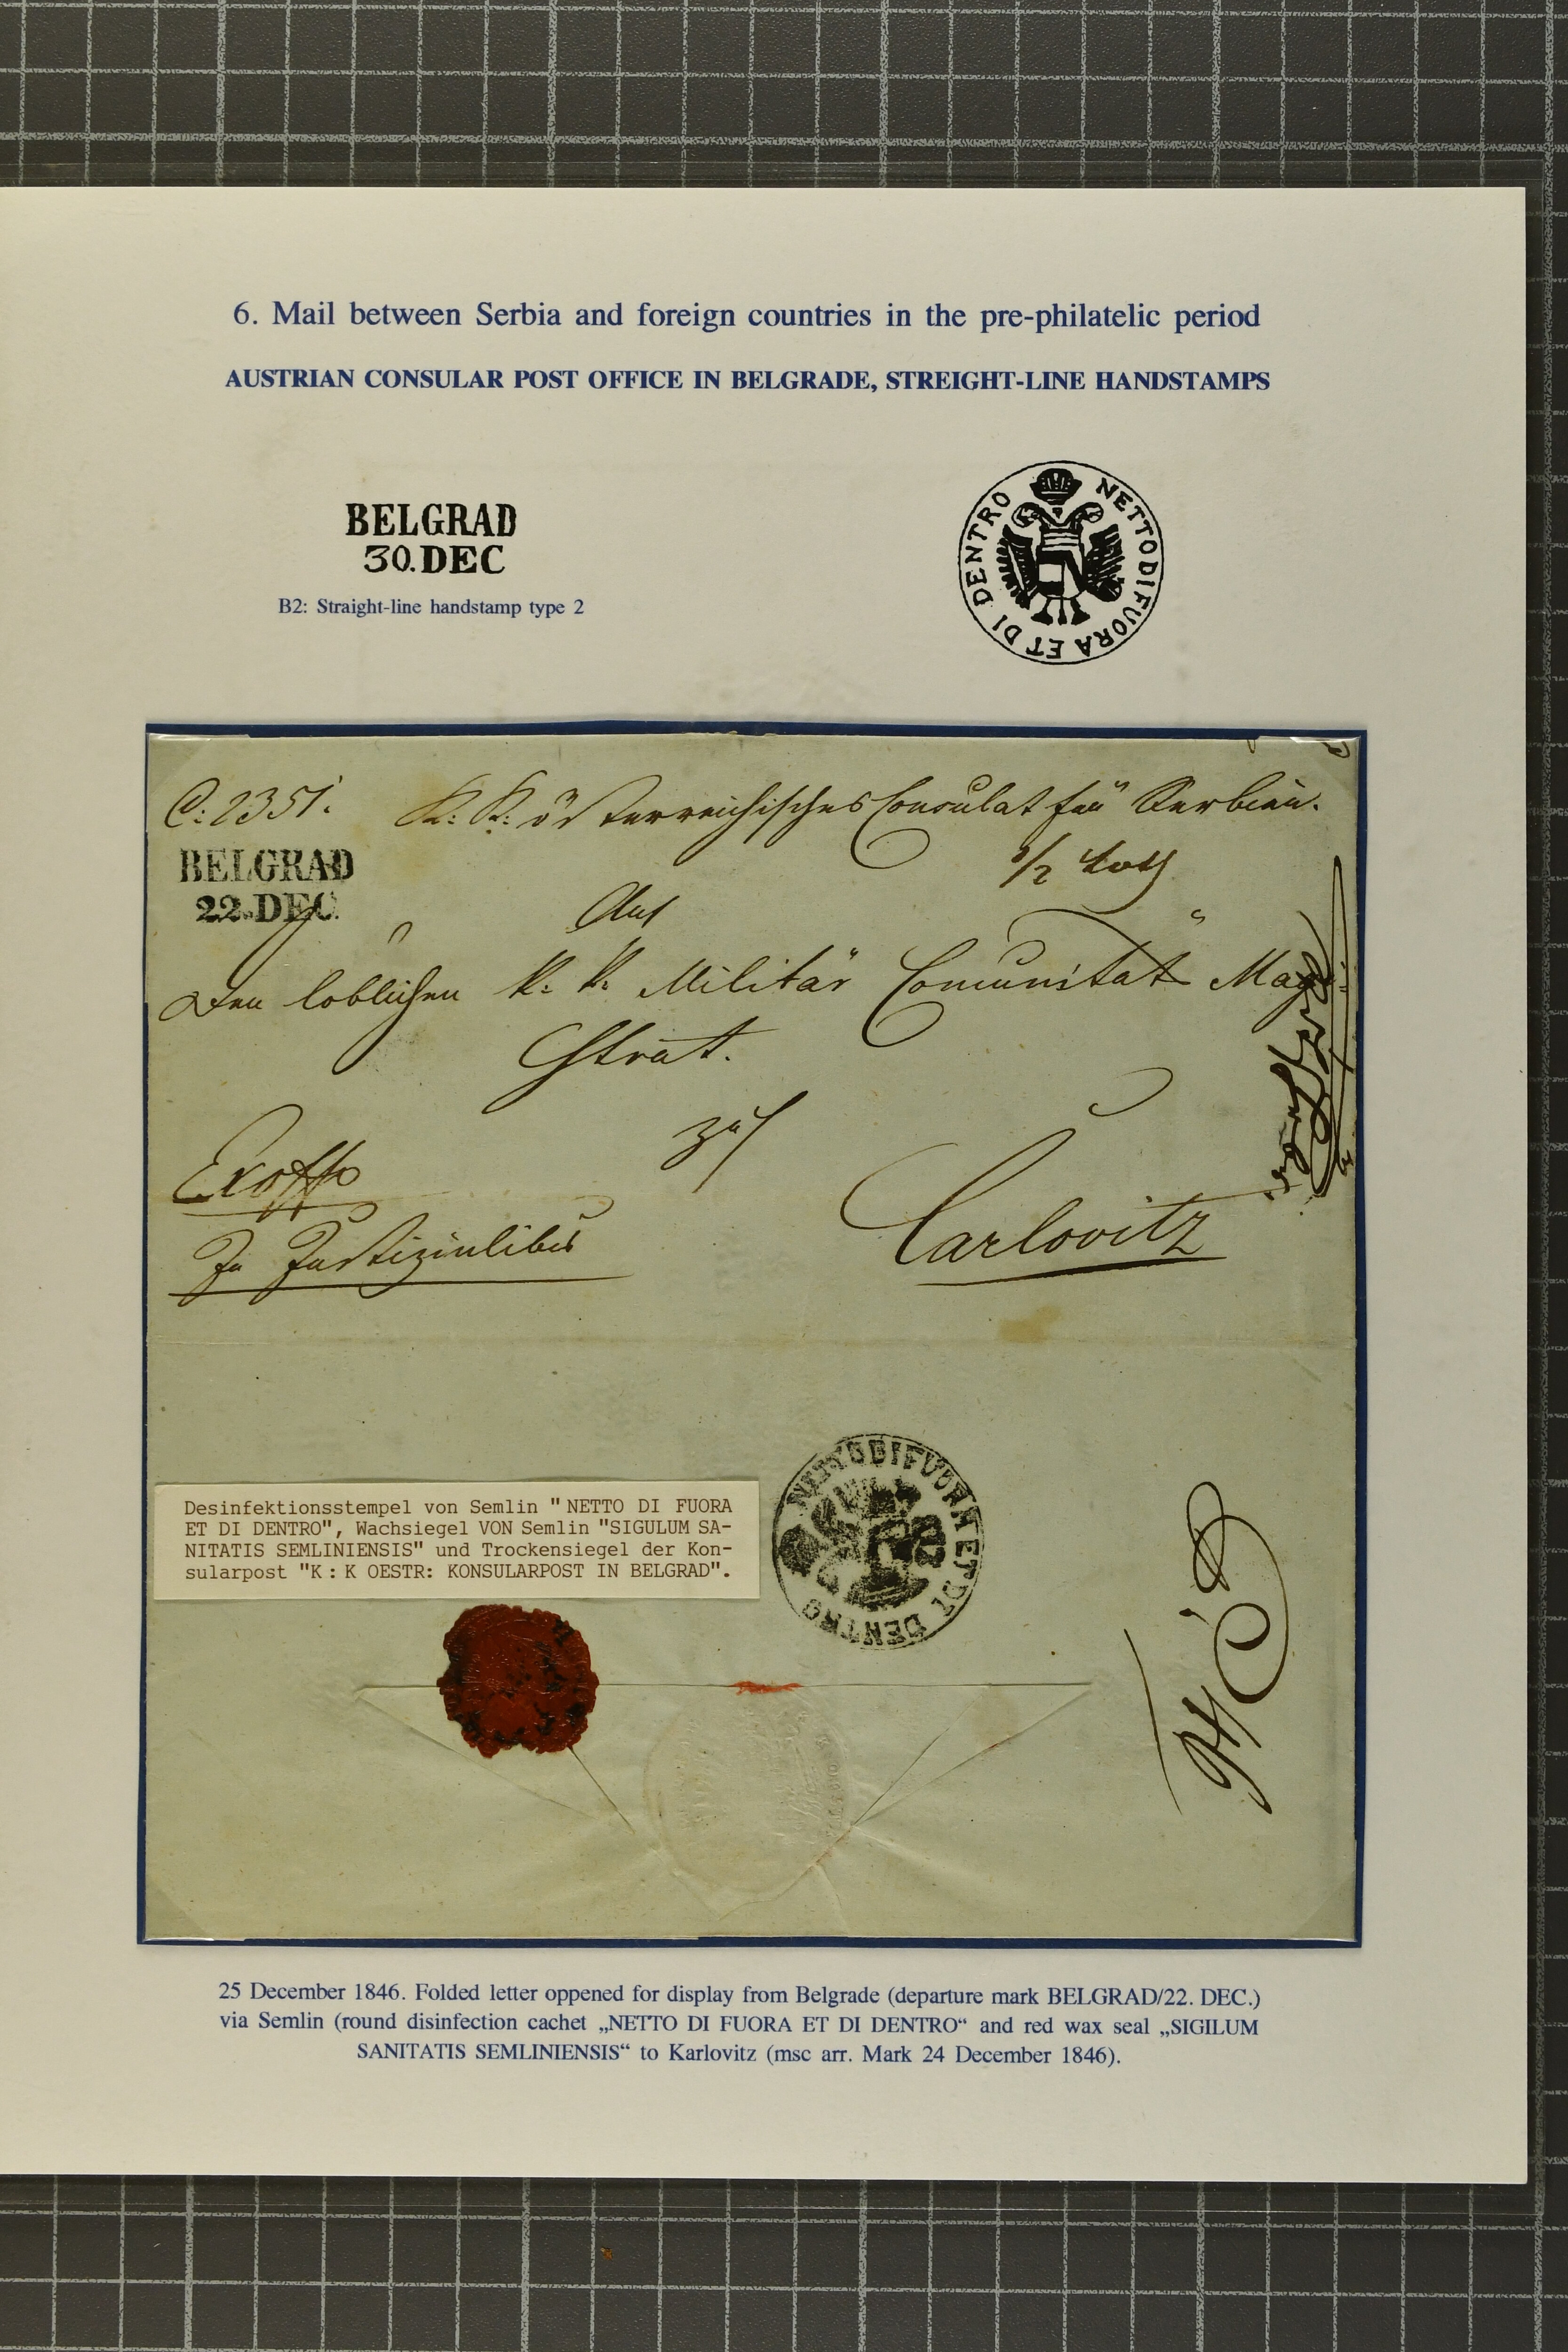 6. Mail between Serbia and foreign countries in the pre-philatelic period
AUSTRIAN CONSULAR POST OFFICE IN BELGRADE, STREIGHT-LINE HANDSTAMPS
BELGRAD
30.DEC
B2: Straight-line handstamp type 2
NETTO DI FUORA ET DI DENTRO
C: 2351.
K: K: österreichisches Consulat für Serbien.
BELGRAD
22.DEC
1/2 Loth
An
Den löblichen k: k: Militär Comunitäts Magi-
strat.
Exoffo
zu
In Justizialibus
Carlovitz
NETTO DI FUORA ET DI DENTRO
Desinfektionsstempel von Semlin "NETTO DI FUORA
ET DI DENTRO", Wachsiegel VON Semlin "SIGULUM SA-
NITATIS SEMLINIENSIS" und Trockensiegel der Kon-
sularpost "K:K OESTR: KONSULARPOST IN BELGRAD".
25 December 1846. Folded letter oppened for display from Belgrade (departure mark BELGRAD/22. DEC.)
via Semlin (round disinfection cachet „NETTO DI FUORA ET DI DENTRO“ and red wax seal „SIGILUM
SANITATIS SEMLINIENSIS“ to Karlovitz (msc arr. Mark 24 December 1846).